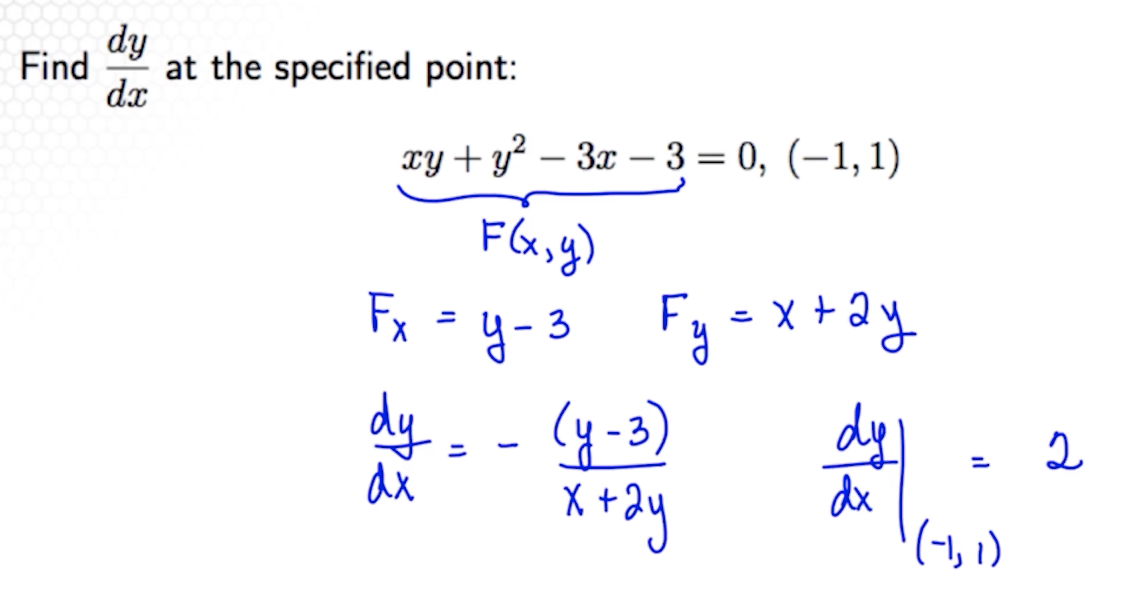 Find dy/dx at the specified point:
xy + y² − 3x − 3 = 0, (−1, 1)
F(x, y)
Fₓ = y − 3    F_y = x + 2y
dy/dx = − (y − 3)/(x + 2y)    dy/dx|₍₋₁, ₁₎ = 2